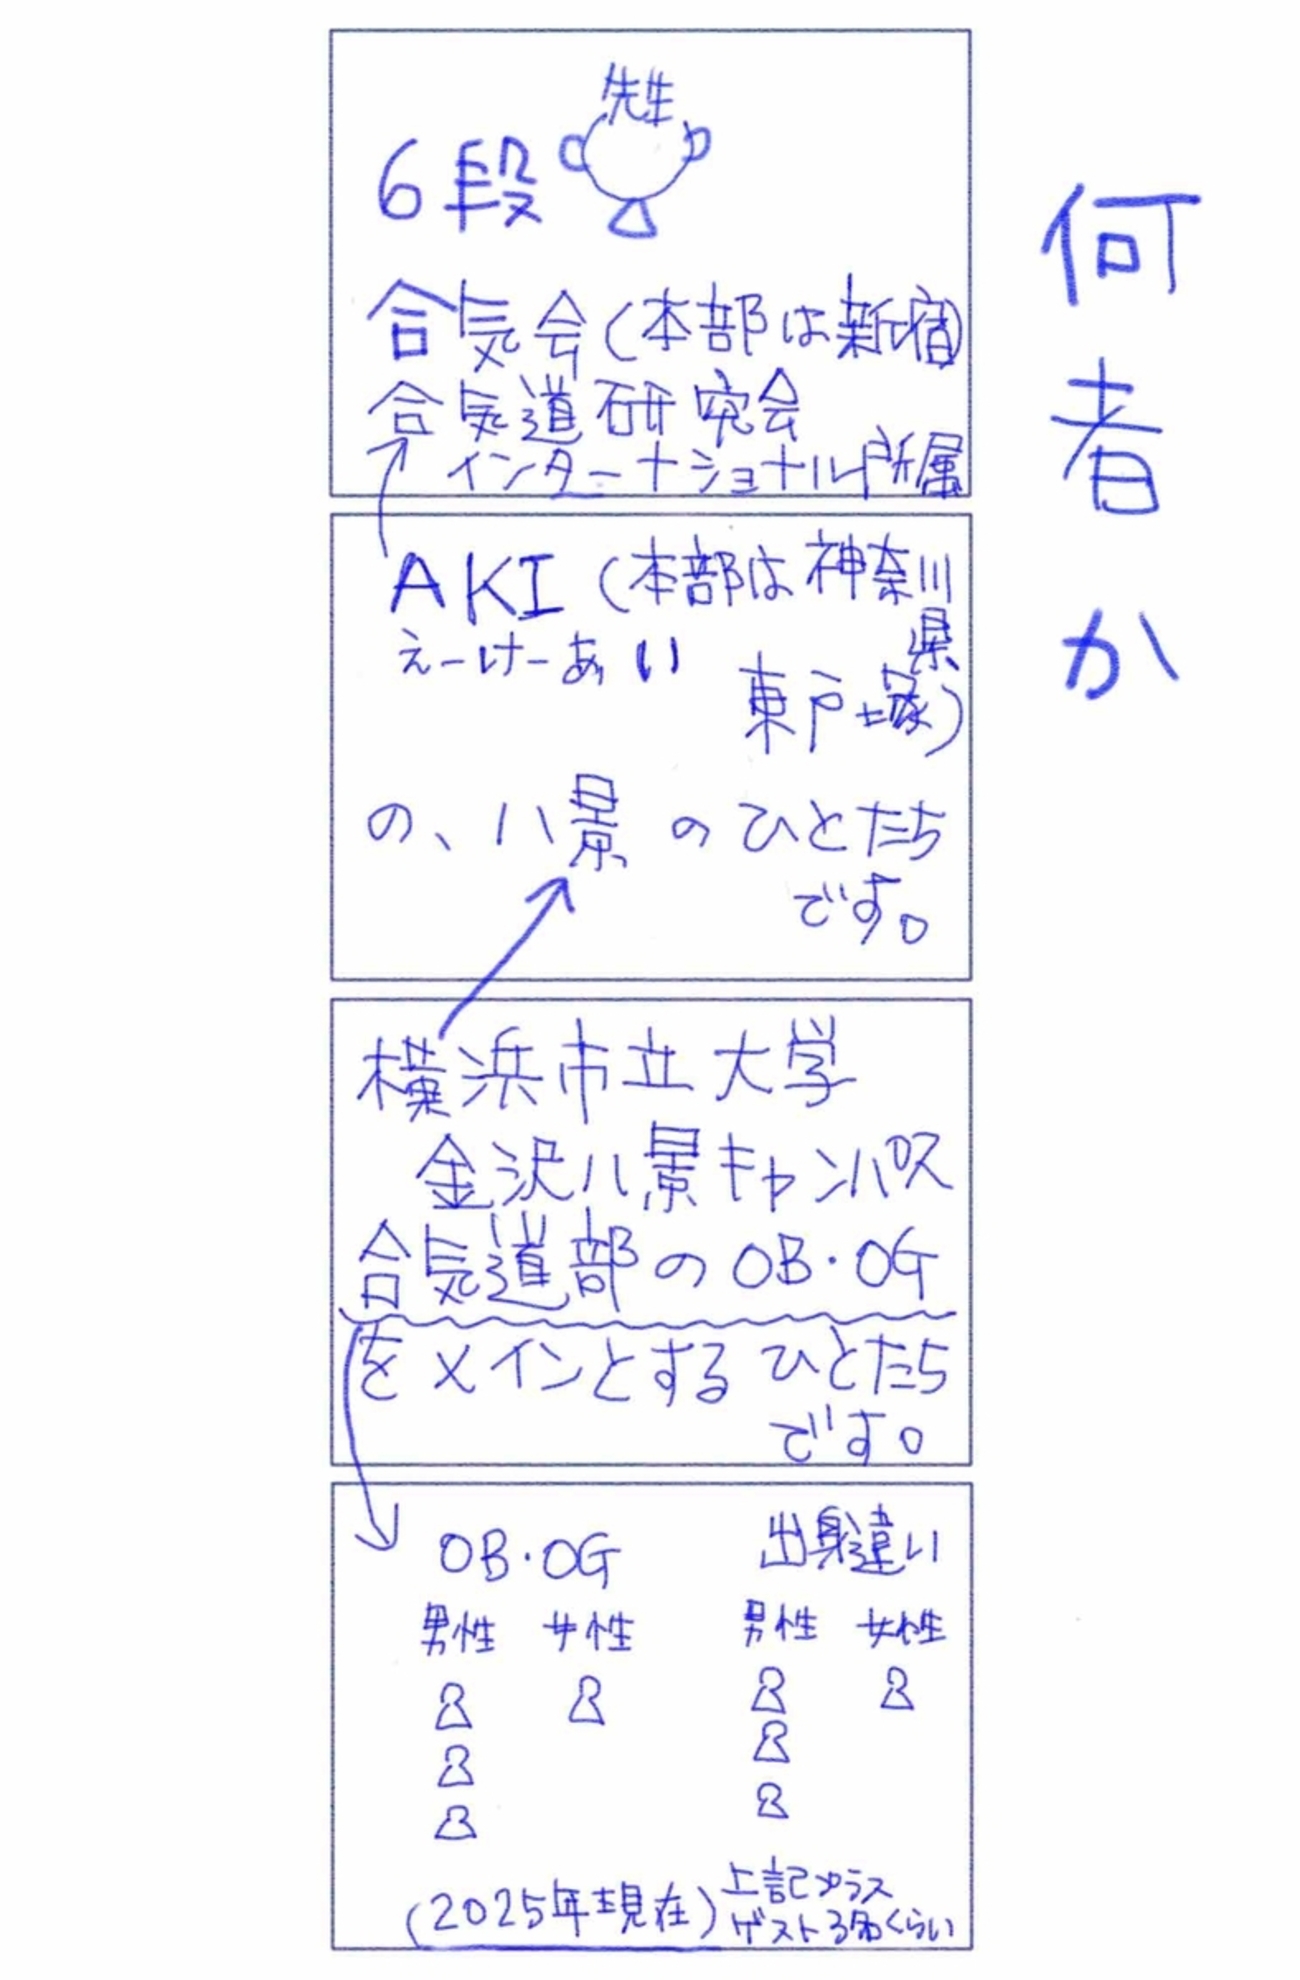 何者か
先生
6段
合気会(本部は新宿)
合気道研究会
インターナショナル所属
AKI(本部は神奈川県
えーけーあい
東戸塚)
の、八景のひとたち
です。
横浜市立大学
金沢八景キャンパス
合気道部のOB・OG
をメインとするひとたち
です。
OB・OG 出身違い
男性 女性 男性 女性
(2025年現在)上記プラス
ゲスト3名くらい